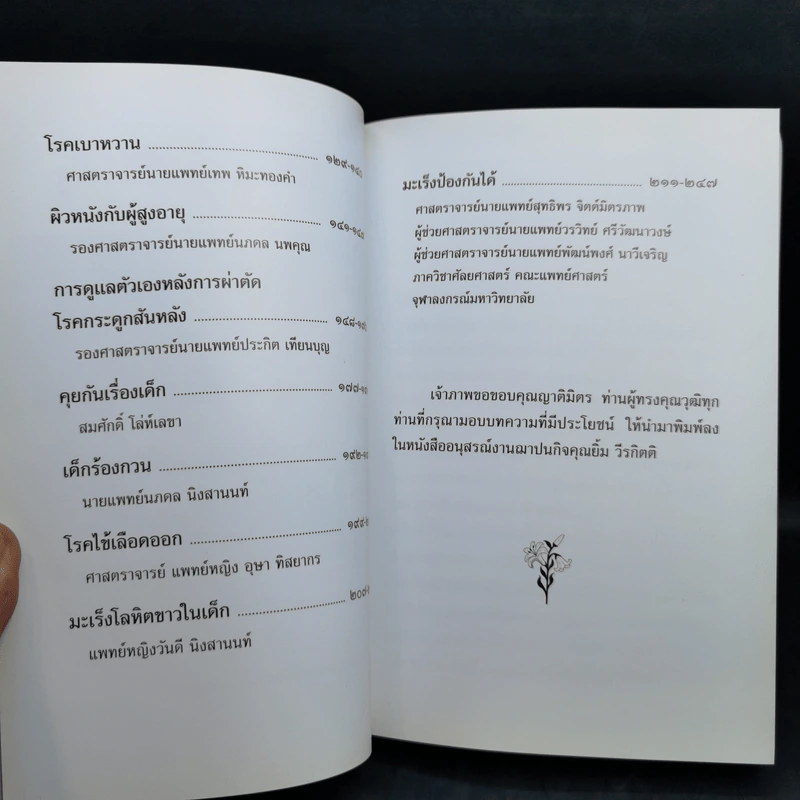 โรคเบาหวาน ........................................ ๑๒๙-๑๔๐
ศาสตราจารย์นายแพทย์เทพ หิมะทองคำ
ผิวหนังกับผู้สูงอายุ ........................................ ๑๔๑-๑๔๗
รองศาสตราจารย์นายแพทย์นภดล นพคุณ
การดูแลตัวเองหลังการผ่าตัด
โรคกระดูกสันหลัง ........................................ ๑๔๘-
รองศาสตราจารย์นายแพทย์ประกิต เทียนบุญ
คุยกันเรื่องเด็ก ........................................ ๑๗๗-
สมศักดิ์ โล่ห์เลขา
เด็กร้องกวน ........................................ ๑๙๒-
นายแพทย์นภดล นิงสานนท์
โรคไข้เลือดออก ........................................ ๑๙๙-
ศาสตราจารย์ แพทย์หญิง อุษา ทิสยากร
มะเร็งโลหิตขาวในเด็ก ........................................
แพทย์หญิงวันดี นิงสานนท์
มะเร็งป้องกันได้ ........................................ ๒๑๑-๒๔๗
ศาสตราจารย์นายแพทย์สุทธิพร จิตต์มิตรภาพ
ผู้ช่วยศาสตราจารย์นายแพทย์วรวิทย์ ศรีวัฒนาวงษ์
ผู้ช่วยศาสตราจารย์นายแพทย์พัฒน์พงศ์ นาวีเจริญ
ภาควิชาศัลยศาสตร์ คณะแพทย์ศาสตร์
จุฬาลงกรณ์มหาวิทยาลัย
เจ้าภาพขอขอบคุณญาติมิตร ท่านผู้ทรงคุณวุฒิทุก
ท่านที่กรุณามอบบทความที่มีประโยชน์ ให้นำมาพิมพ์ลง
ในหนังสืออนุสรณ์งานฌาปนกิจคุณยิ้ม วีรกิตติ